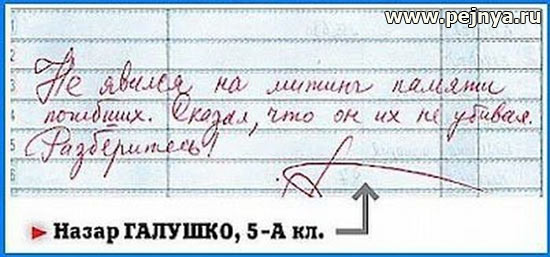 www.pejnya.ru
Не явился на митинг памяти
погибших. Сказал, что он их не убивал.
Разберитесь!
Назар ГАЛУШКО, 5-А кл.